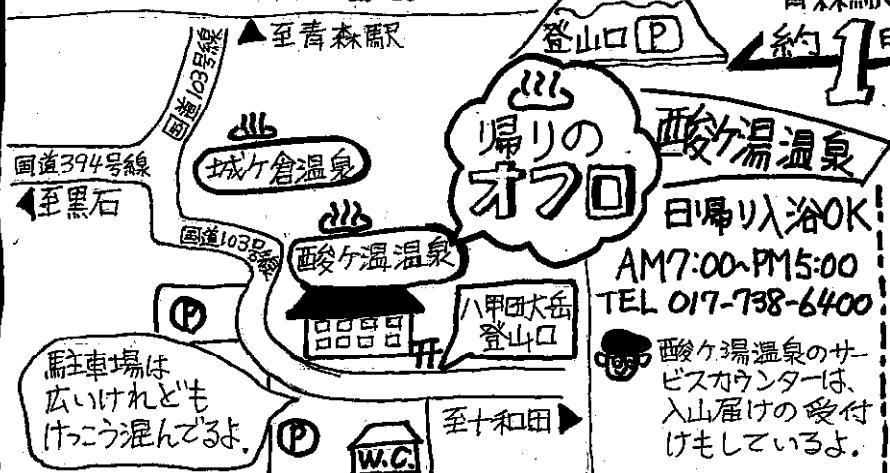 ▲至青森駅
国道103号線
国道394号線
◀至黒石
城ヶ倉温泉
国道103号線
酸ヶ湯温泉
登山口 P
約1
帰りの
オフロ
酸ヶ湯温泉
日帰り入浴OK
AM7:00~PM5:00
TEL 017-738-6400
酸ヶ湯温泉のサー
ビスカウンターは、
入山届けの受付
けもしているよ.
八甲田大岳
登山口
P
駐車場は
広いけれども
けっこう混んでるよ.
P
W.C.
至十和田▶